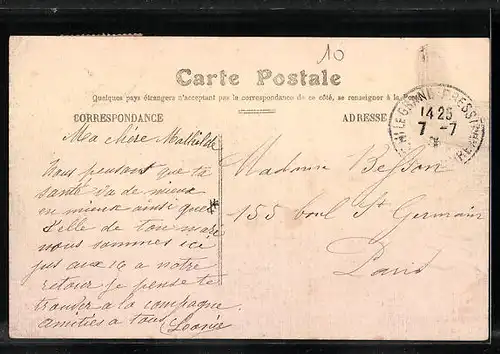 10
Carte Postale
Quelques pays étrangers n'acceptant pas la correspondance de ce côté, se renseigner à la Poste
CORRESPONDANCE
ADRESSE
LE GRAND-PRESSI
14 25
7 -7
Ma chère Mathilde
Nous pensant que ta
santé va de mieux
en mieux ainsi que
celle de ton mari
nous sommes ici
jus aux 19 a notre
retour je pense te
trouver a la compagne
amitiés a tous
Madame Besson
155 boul St Germain
Paris